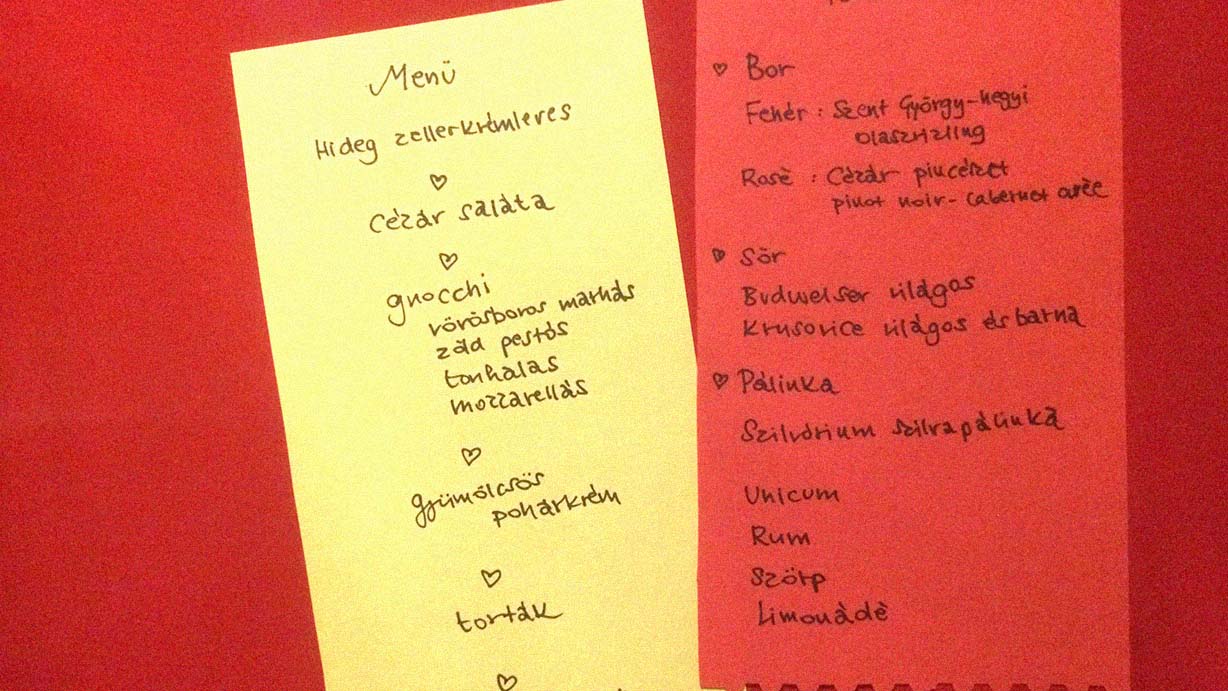 Menü
Hideg zellerkrémleves
Cézár saláta
gnocchi
vörösboros marhás
zöld pestós
tonhalas
mozzarellás
gyümölcsös
pohárkrém
torták
Bor
Fehér : Szent György-hegyi
olaszrizling
Rosè : Cézár pincészet
pinot noir - cabernet
Sör
Budweiser világos
Krusovice világos és barna
Pálinka
Szilvórium szilvapálinka
Unicum
Rum
Szörp
Limonádè